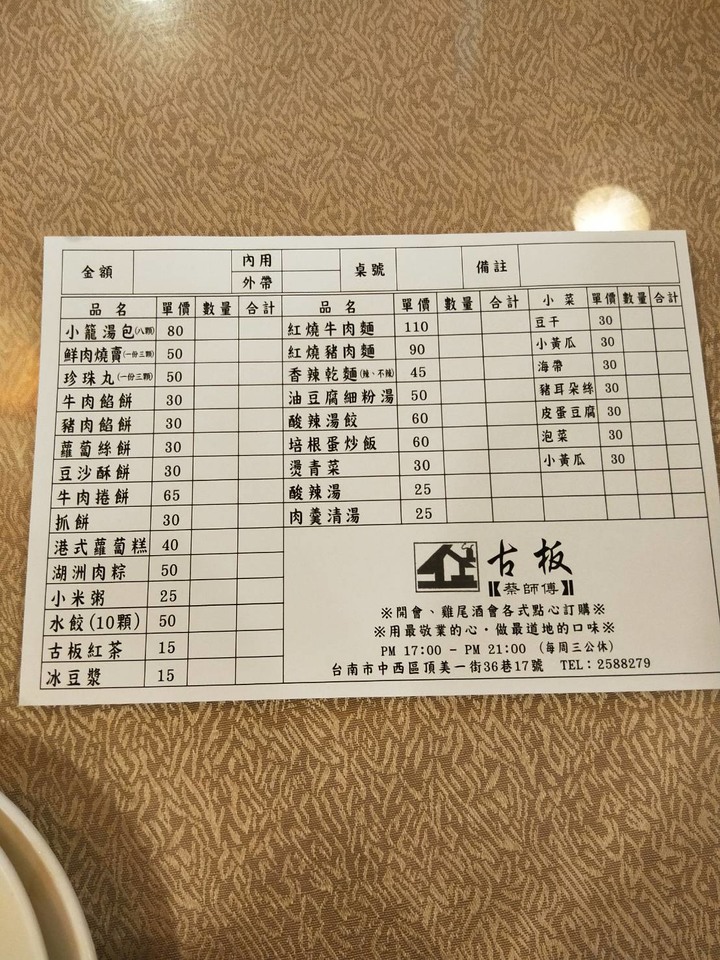 金額 內用 外帶 桌號 備註
品名 單價 數量 合計 品名 單價 數量 合計 小菜 單價 數量 合計
小籠湯包(八顆) 80 紅燒牛肉麵 110 豆干 30
鮮肉燒賣(一份三顆) 50 紅燒豬肉麵 90 小黃瓜 30
珍珠丸(一份三顆) 50 香辣乾麵(辣、不辣) 45 海帶 30
牛肉餡餅 30 油豆腐細粉湯 50 豬耳朵絲 30
豬肉餡餅 30 酸辣湯餃 60 皮蛋豆腐 30
蘿蔔絲餅 30 培根蛋炒飯 60 泡菜 30
豆沙酥餅 30 燙青菜 30 小黃瓜 30
牛肉捲餅 65 酸辣湯 25
抓餅 30 肉羹清湯 25
港式蘿蔔糕 40
湖洲肉粽 50
小米粥 25
水餃(10顆) 50
古板紅茶 15
冰豆漿 15
古板
【蔡師傅】
※開會、雞尾酒會各式點心訂購※
※用最敬業的心·做最道地的口味※
PM 17:00 - PM 21:00 (每周三公休)
台南市中西區頂美一街36巷17號 TEL:2588279